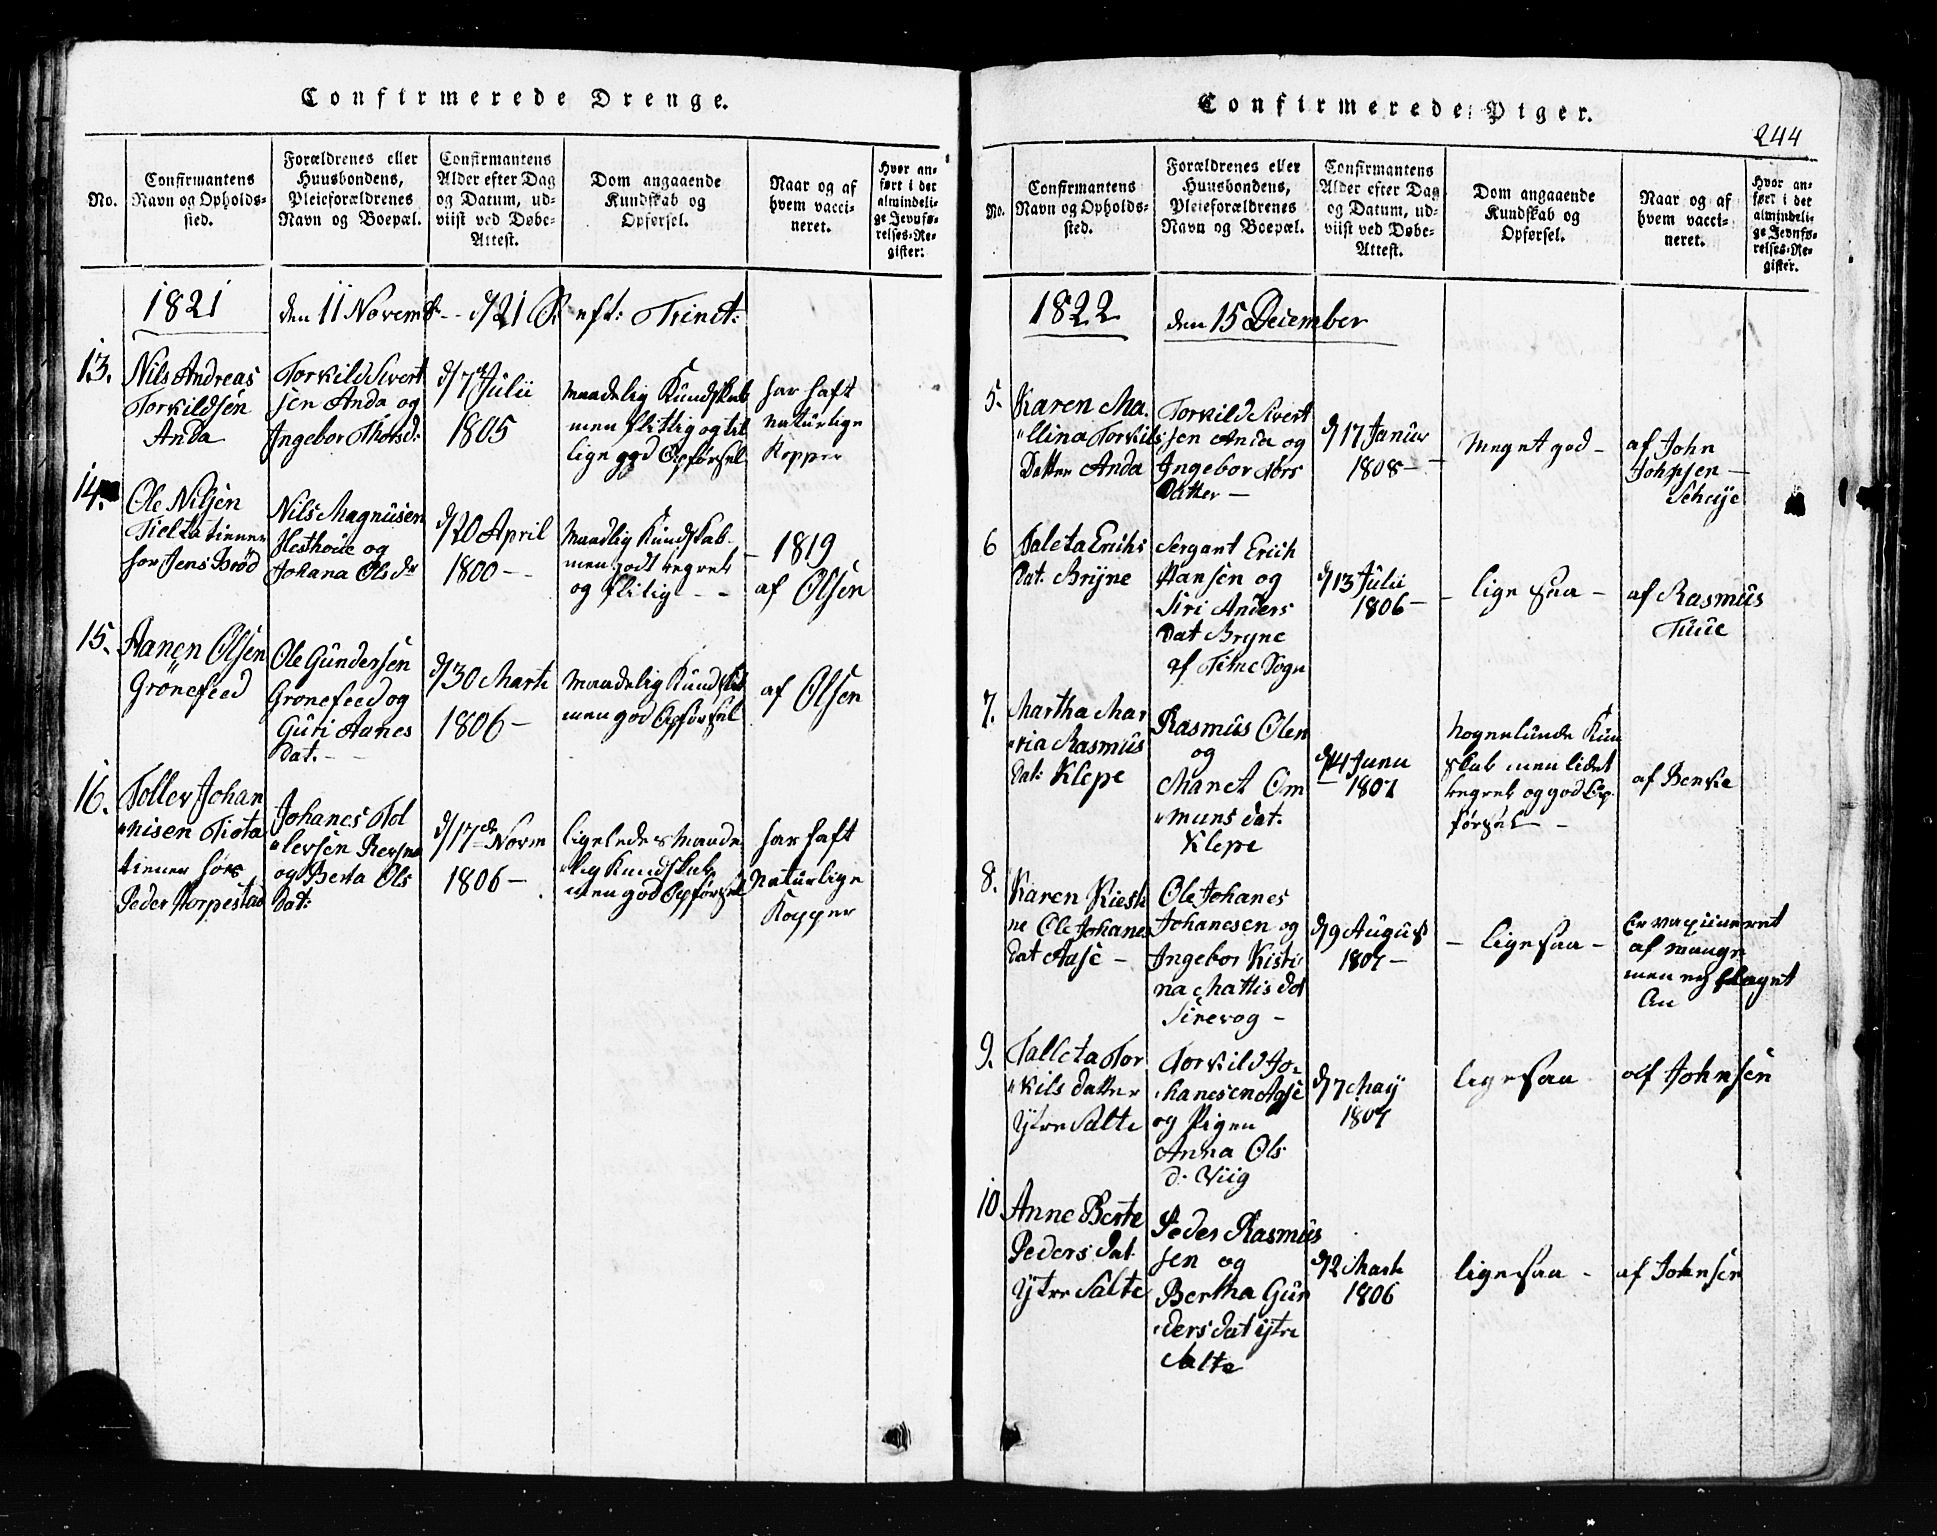 Confirmerede Drenge.
No.
Confirmantens
Navn og Opholds-
sted.
Forældrenes eller
Huusbondens,
Pleieforældrenes
Navn og Boepæl.
Confirmantens
Alder efter Dag
og Datum, ud-
viist ved Døbe-
Attest.
Dom angaaende
Kundskab og
Opførsel.
Naar og af
hvem vacci-
neret.
Hvor an-
ført i det
almindeli-
ge Jevnfø-
relses-Re-
gister.
1821
den 11 Novembr - d/21 S. eft: Trinit:
13.
Nils Andreas
Torkildsen
Anda
Torkild Sivert
sen Anda og
Ingebor Thorsd:
d/7de Julii
1805
maadelig Kundskab
men flitlig og til
lige god Opførsel
har haft
naturlige
Kopper
14.
Ole Nilsen
Tielta tiener
hos Jens Brød
Nils Magnusen
Hesthoue og
Johana Ols dr
d/20 April
1800 -
Maadlig Kundskab
men godt begreb
og flitig - -
- 1819
af Olsen
15.
Aanen Olsen
Grønefeed
Ole Gundersen
Gronefeed og
Guri Aanes
dat. -
d/30 Marti
1806 -
Maadelig Kundskab
men god Opførsel
af Olsen
16.
Toller Johan
nisen Tiøta
tiener hos
Peder Norpestad
Johanes Tol
lersen
og Berta Ols
dat:
d/17de Novm
1806 -
ligeledes Maade
lig Kundskab
men god Opførsel
har haft
Naturlige
Kopper
Confirmerede Piger.
244
No.
Confirmantens
Navn og Opholds-
sted.
Forældrenes eller
Huusbondens,
Pleieforældrenes
Navn og Boepæl.
Confirmantens
Alder efter Dag
og Datum, ud-
viist ved Døbe-
Attest.
Dom angaaende
Kundskab og
Opførsel.
Naar og af
hvem vacci-
neret.
Hvor an-
ført i det
almindeli-
ge Jevnfø-
relses-Re-
gister.
1822
den 15 December
5.
Karen Ma.
llina Torkils
Datter Anda
Torkild Sivert
sen Anda og
Ingebor Tors
Datter -
d/17 Januar
1808 -
Meget god -
af John
Johnsen -
6
Taleta Erichs
dat: Bryne
Sergant Erich
Hansen og
Siri Anders
Dat Bryne
af Time Sogn
d/13 Julii
1806 -
- lige saa -
af Rasmus
Tuue
7.
Martha Mar
ria Rasmus
dat: Klepe
Rasmus Olen
og
Manet Om
muns dat.
Klepe
d/4 Junii
- 1807
nogenlunde Kun
skab men lidet
begreb og god Op
førsel -
af Benkie
8.
Karen Kiesti
ne Ole Johanes
dat Aase -
Ole Johanes
Johanesen og
Ingebor Kisti
na Mattis dat
Sirevog -
d/9 August
1807 -
- ligesaa -
Er vaxineret
af mange
men ej slaget
An
9.
Talleta Tor
kils datter
Ytre Salte
Torkild Jo-
hanesen Aase
og Pigen
Anna Ols
d. Viig
d/7 Maij
1807
ligesaa
af Johnsen
10
Anne Berte
Peders dat
Ytre Salte
Peder Rasmus
sen og
Bertha Gun
ders dat ytre
Salte
d/2 Marti
1806
ligesaa -
af Johnsen